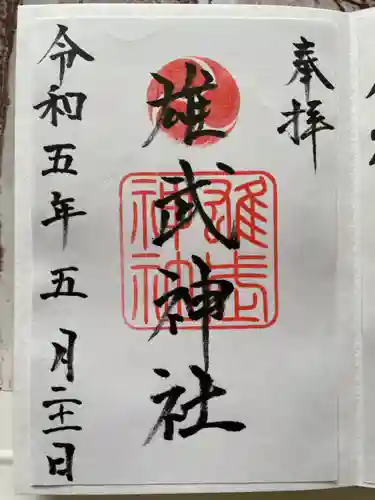 奉拝
雄武神社
雄武神社
令和五年五月二十一日